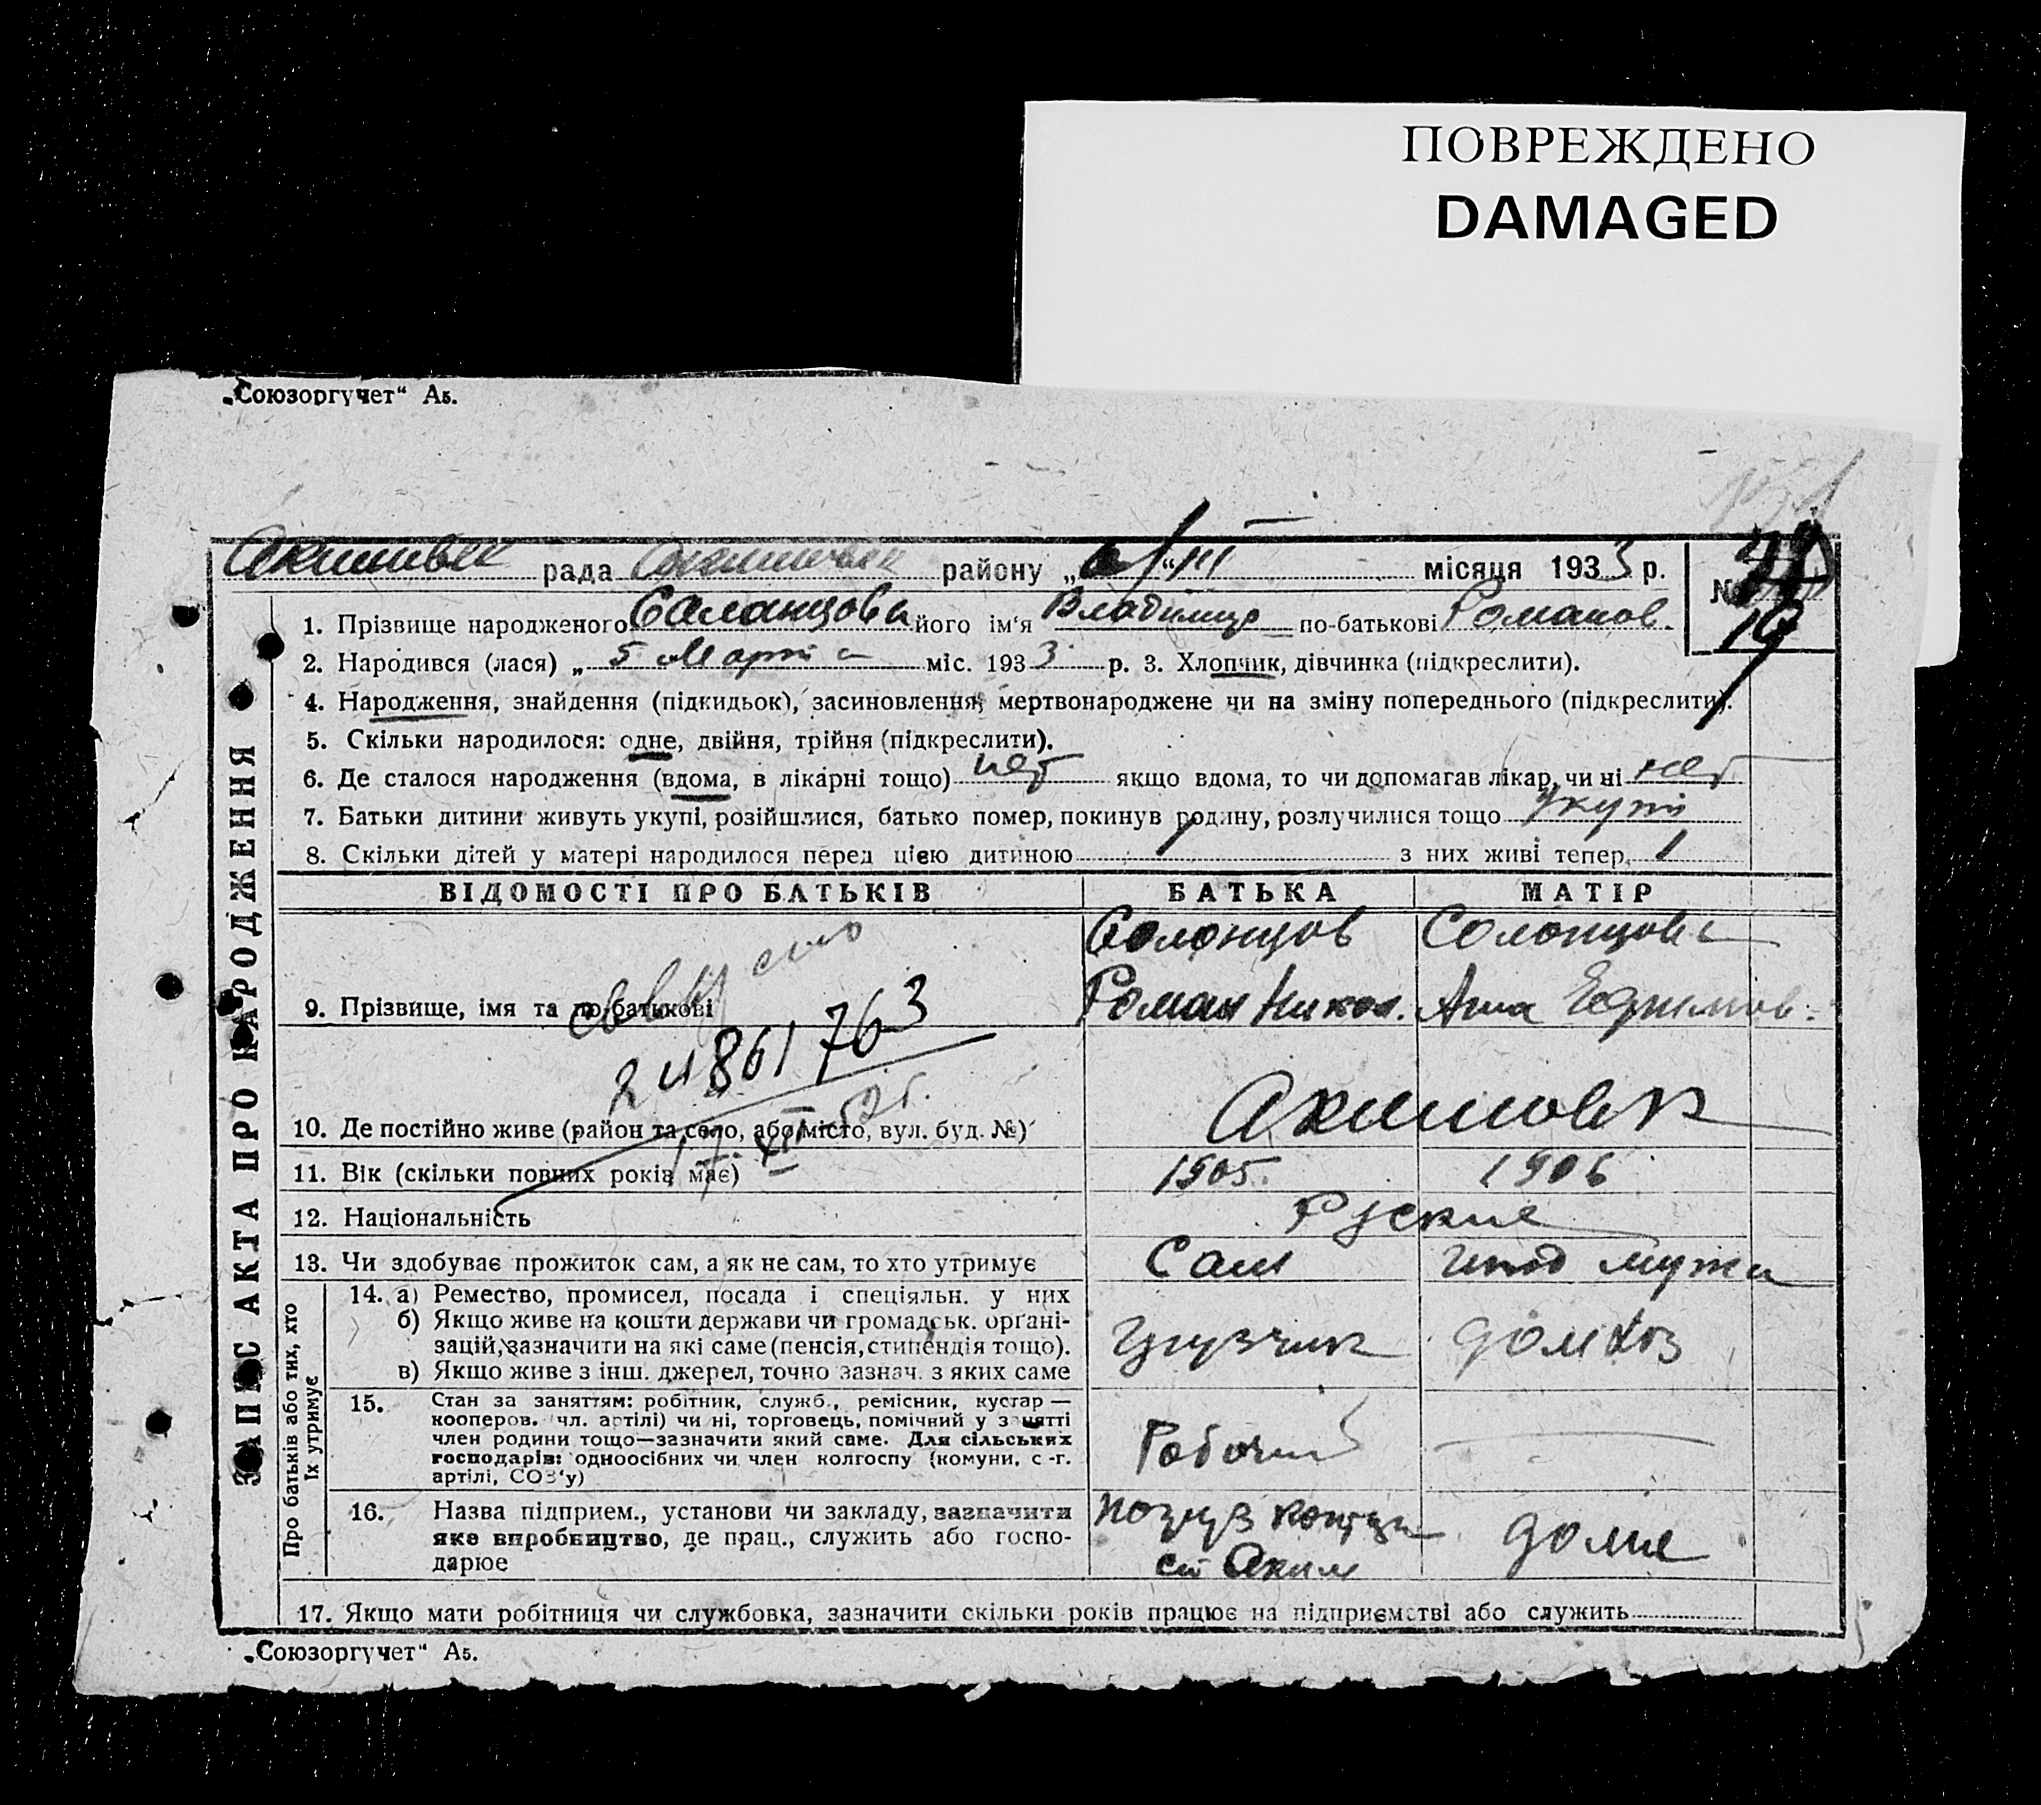 ПОВРЕЖДЕНО
DAMAGED
„Союзоргучет“ А5.
Акимовск рада Акимовск району „ “ III місяця 1933 р. № 19
ЗАПИС АКТА ПРО НАРОДЖЕННЯ
1. Прізвище народженого Саланцова його ім‘я Владимир по-батькові Романов.
2. Народився (лася) „ 5 Марта міс. 1933 р. 3. Хлопчик, дівчинка (підкреслити).
4. Народження, знайдення (підкидьок), засиновлення, мертвонароджене чи на зміну попереднього (підкреслити).
5. Скільки народилося: одне, двійня, трійня (підкреслити).
6. Де сталося народження (вдома, в лікарні тощо) нет якщо вдома, то чи допомагав лікар, чи ні нет
7. Батьки дитини живуть укупі, розійшлися, батько помер, покинув родину, розлучилися тощо укупі
8. Скільки дітей у матері народилося перед цією дитиною 1 з них живі тепер 1
ВІДОМОСТІ ПРО БАТЬКІВ БАТЬКА МАТІР
Солонцов Солонцова
9. Прізвище, імя та по-батькові Роман Никол. Анна Ефимов.
861763
10. Де постійно живе (район та село, або місто, вул. буд. №) Акимовк
11. Вік (скільки повних років має) 1905. 1906
12. Національність Руские
13. Чи здобуває прожиток сам, а як не сам, то хто утримує Сам мужа
Про батьків або тих, хто їх утримує
14. а) Ремество, промисел, посада і спеціяльн. у них
б) Якщо живе на кошти держави чи громадськ. органі-
зацій, зазначити на які саме (пенсія, стипендія тощо). грузчик домхоз
в) Якщо живе з інш. джерел, точно зазнач. з яких саме
15. Стан за заняттям: робітник, служб., ремісник, кустар —
кооперов. чл. артілі) чи ні, торговець, помічний у занятті
член родини тощо—зазначити який саме. Для сільських
господарів: одноосібних чи член колгоспу (комуни, с.-г.
артілі, СОЗ‘у) Рабочий
16. Назва підприєм., установи чи закладу, зазначити
яке виробництво, де прац., служить або госпо-
дарює ст Аким доме
17. Якщо мати робітниця чи службовка, зазначити скільки років працює на підприємстві або служить
„Союзоргучет“ А5.